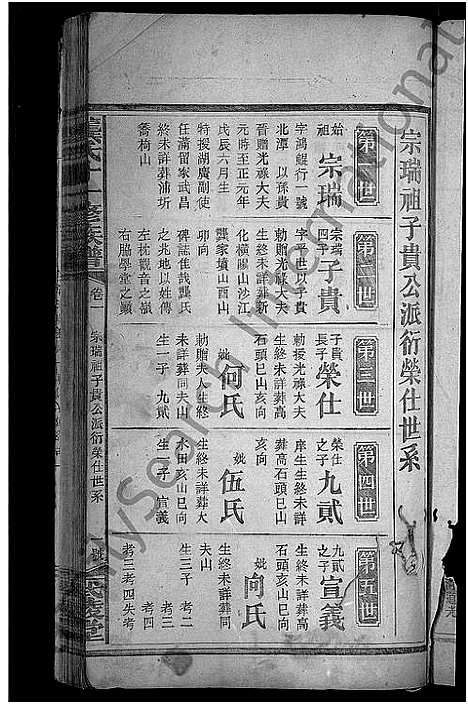 宗瑞祖子貴公派衍榮仕世系
第一世
始祖 宗瑞
字鴻鯤行一號
北潭 以孫貴
晉贈光祿大夫
元時至正元年
戊辰六月生
特授湖廣副使
任滿留家武昌
終未詳葬浦圻
蕎椅山
第二世
宗瑞四子 子貴
字平世以子貴
勅贈光祿大夫
生終未詳葬新
化橫陽山沙江
龔家墳山酉山
卯向
碑誌惟哉龔氏
之兆地以姓傳
左枕觀音之嶺
右脇學堂之巔
第三世
子貴長子 榮仕
勅授光祿大夫
生終未詳葬高
石頭巳山亥向
妣 何氏
勅贈夫人生終
未詳葬同夫山
生一子 九貳
第四世
榮仕之子 九貳
庠生生終未詳
葬高石頭巳山
亥向
妣 伍氏
生終未詳葬大
木田亥山巳向
生一子 宣義
第五世
九貳之子 宣義
生終未詳葬高
石頭亥山巳向
妣 向氏
生終未詳葬同
夫山
生三子 考二
考三
考四
考三考四失考
氏 修族譜
卷一
宗瑞祖子貴公派衍榮仕世系
一
堂
MySearch International